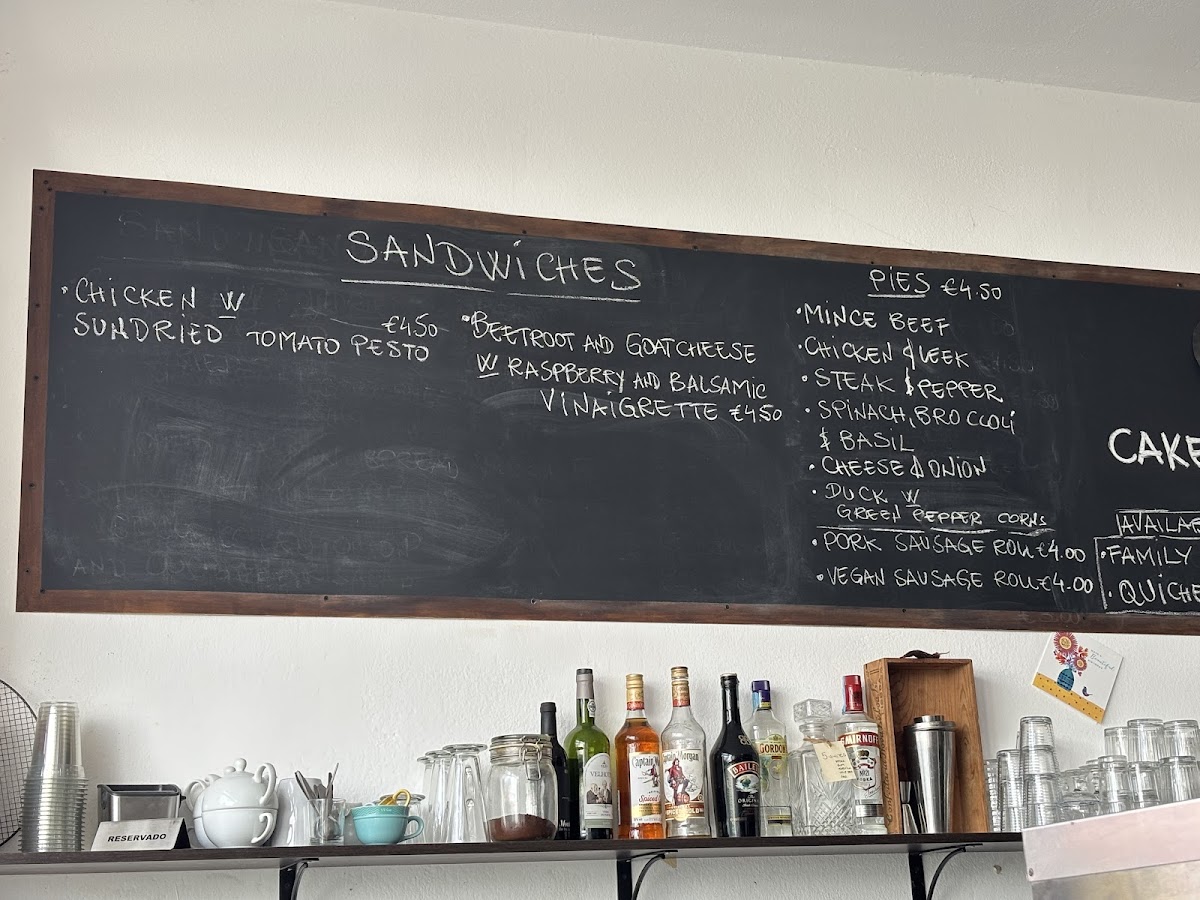 SANDWiCHES
• CHiCKEN W
SUNDRiED TOMATO PESTO
€4.50
• BEETROOT AND GOATCHEESE
W RASPBERRY AND BALSAMIC
VINAiGRETTE €4.50
PiES €4.50
• MINCE BEEF
• CHICKEN & LEEK
• STEAK & PEPPER
• SPINACH, BROCCOLi
& BASIL
• CHEESE & ONION
• DUCK W
GREEN PEPPER CORNS
• PORK SAUSAGE ROLL €4.00
• VEGAN SAUSAGE ROLL €4.00
CAKE
AVAILAB
• FAMILY
• QUiCHE
RESERVADO
Captain
Spiced
Morgan
BAILEYS
GORDON
SMIRNOFF